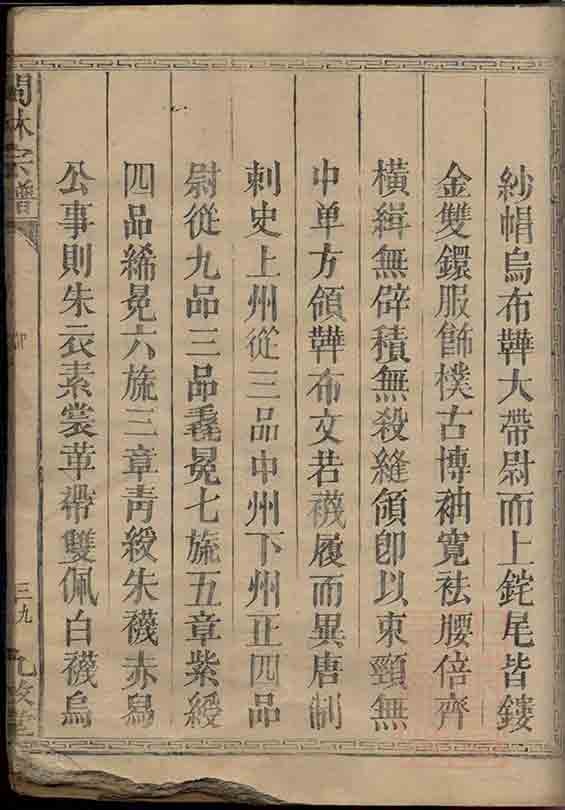 紗帽烏布鞾大帶尉而上鉈尾皆鏤
金雙鐶服飾樸古博袖寬袪腰倍齊
橫緝無辟積無殺縫領卽以束頸無
中单方領鞾布文若襪履而異唐制
刺史上州從三品中州下州正四品
尉從九品三品毳冕七旒五章紫綬
四品絺冕六旒三章靑綬朱襪赤舄
公事則朱衣素裳革帶雙佩白襪烏
林宗譜
三九